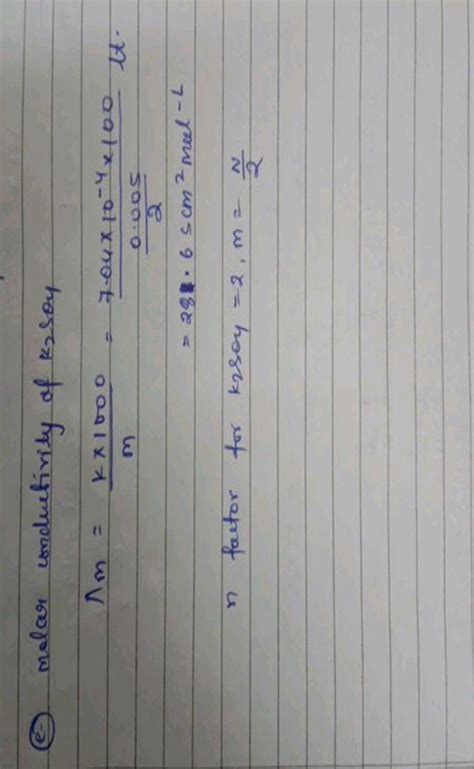 (c) molar conductivity of k2soy
Λm = K×1000/m = 7.04×10⁻⁴×100/(0.005/2) lt.
= 281.6 scm² mol⁻¹
n factor for k2soy = 2, m = N/2